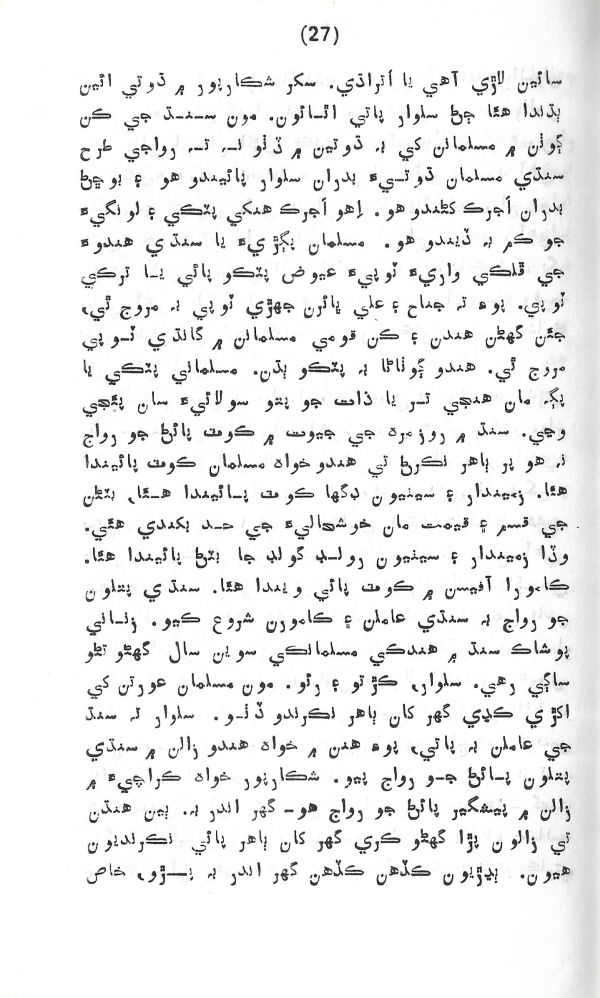 (27)
سائين لاڙي آهي يا اُتراڌي. سکر شڪارپور ۾ ڌوتي ائين
ٻڌندا هئا ڄڻ سلوار پاتي اٿائون. مون سنڌ جي ڪن
ڳوٺن ۾ مسلمانن کي به ڌوتين ۾ ڏٺو نه ته رواجي طرح
سنڌي مسلمان ڌوتيءَ بدران سلوار پائيندو هو ۽ بوڇڻ
بدران اَجرڪ کڻندو هو. اِهو اَجرڪ هنکي پٽڪي ۽ لونگيءَ
جو ڪم به ڏيندو هو. مسلمان پڳڙيءَ يا سنڌي هندوءَ
جي ڦلڪي واريءَ ٽوپيءَ عيوض پٽڪو پائي يا ترڪي
ٽوپي. پوءِ ته جناح ۽ علي ڀائرن جهڙي ٽوپي به مروج ٿي،
جئن گهڻن هندن ۽ ڪن قومي مسلمانن ۾ گانڌي ٽوپي
مروج ٿي. هندو ڳوٺاڻا به پٽڪو ٻڌن. مسلماني پٽڪي يا
پڳ مان هنجي تر يا ذات جو پتو سولائيءَ سان پئجي
وڃي. سنڌ ۾ روزمره جي جيوت ۾ ڪوٽ پائڻ جو رواج
نه هو پر ٻاهر نڪرڻ تي هندو خواه مسلمان ڪوٽ پائيندا
هئا. زميندار ۽ سيٺيون ڊگها ڪوٽ پائيندا هئا، بٽڻن
جي قسم ۽ قيمت مان خوشحاليءَ جي حد بکندي هئي.
وڏا زميندار ۽ سيٺيون رولڊ گولڊ جا بٽڻ پائيندا هئا.
ڪامورا آفيسن ۾ ڪوٽ پائي ويندا هئا. سنڌي پتلون
جو رواج به سنڌي عاملن ۽ ڪامورن شروع ڪيو. زناني
پوشاڪ سنڌ ۾ هندڪي مسلمانڪي سوين سال گهڻو تڻو
ساڳي رهي. سلوار، ڪڙتو ۽ رئو. مون مسلمان عورتن کي
اکڙي ڪڍي گهر کان ٻاهر نڪرندو ڏٺو. سلوار ته سنڌ
جي عاملن به پاتي، پوءِ هنن ۾ خواه هندو زالن ۾ سنڌي
پتلون پائڻ جو رواج پيو. شڪارپور خواه ڪراچيءَ ۾
زالن ۾ پيشگير پائڻ جو رواج هو- گهر اندر به. ٻين هنڌن
تي زالون پڙا گهڻو ڪري گهر کان ٻاهر پائي نڪرنديون
هيون. ٻڍڙيون ڪڏهن ڪڏهن گهر اندر به پڙو، خاص